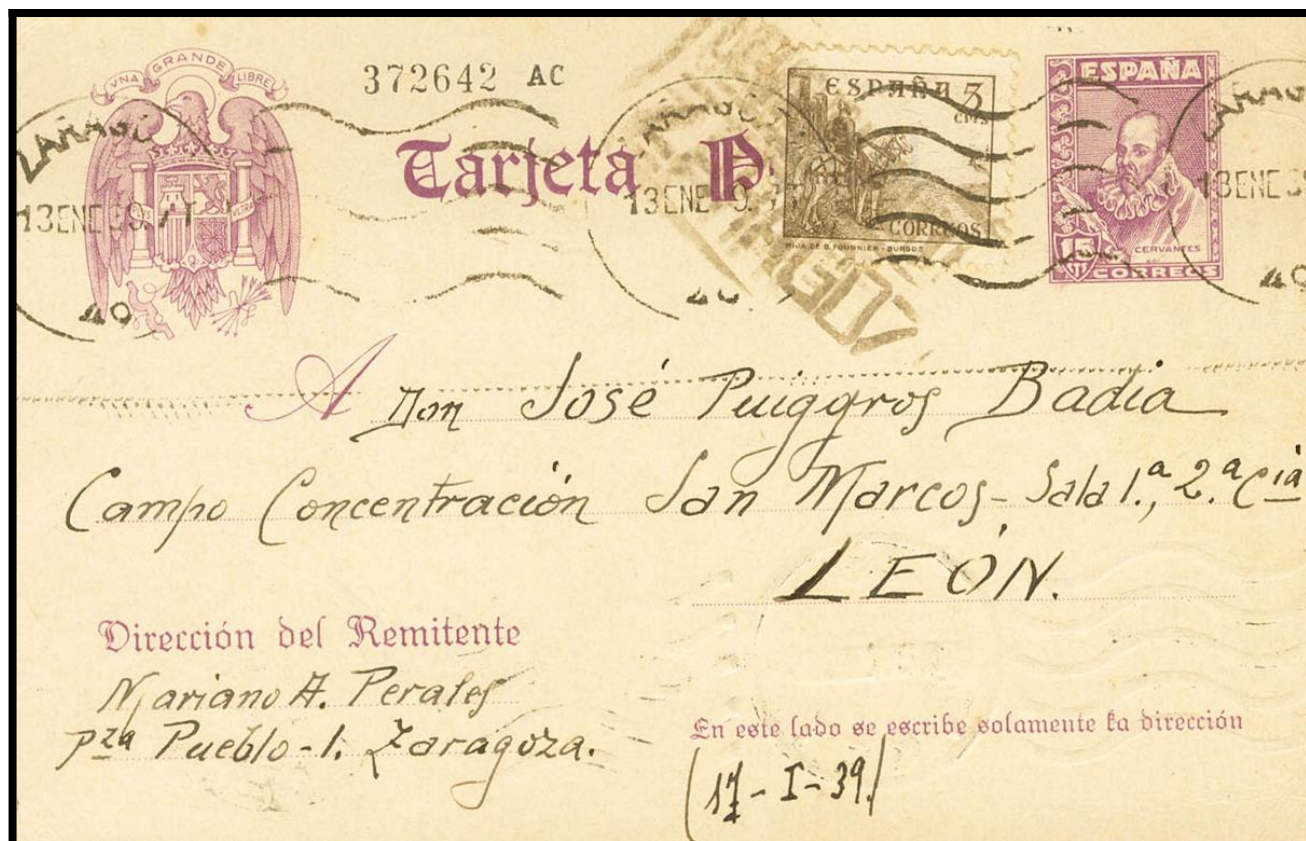 UNA GRANDE LIBRE
372642 AC
Tarjeta P
ESPAÑA 5
CORREOS
HIJA DE B. FOURNIER - BURGOS
ESPAÑA
CERVANTES
15
CORREOS
13 ENE
13 ENE
13 ENE 39
A Don José Puiggros Badia
Campo Concentración San Marcos - Sala 1.ª, 2.ª Cia
LEÓN.
Dirección del Remitente
Mariano A. Perales
Pza Pueblo - 1. Zaragoza.
En este lado se escribe solamente la dirección
(17 - I - 39)